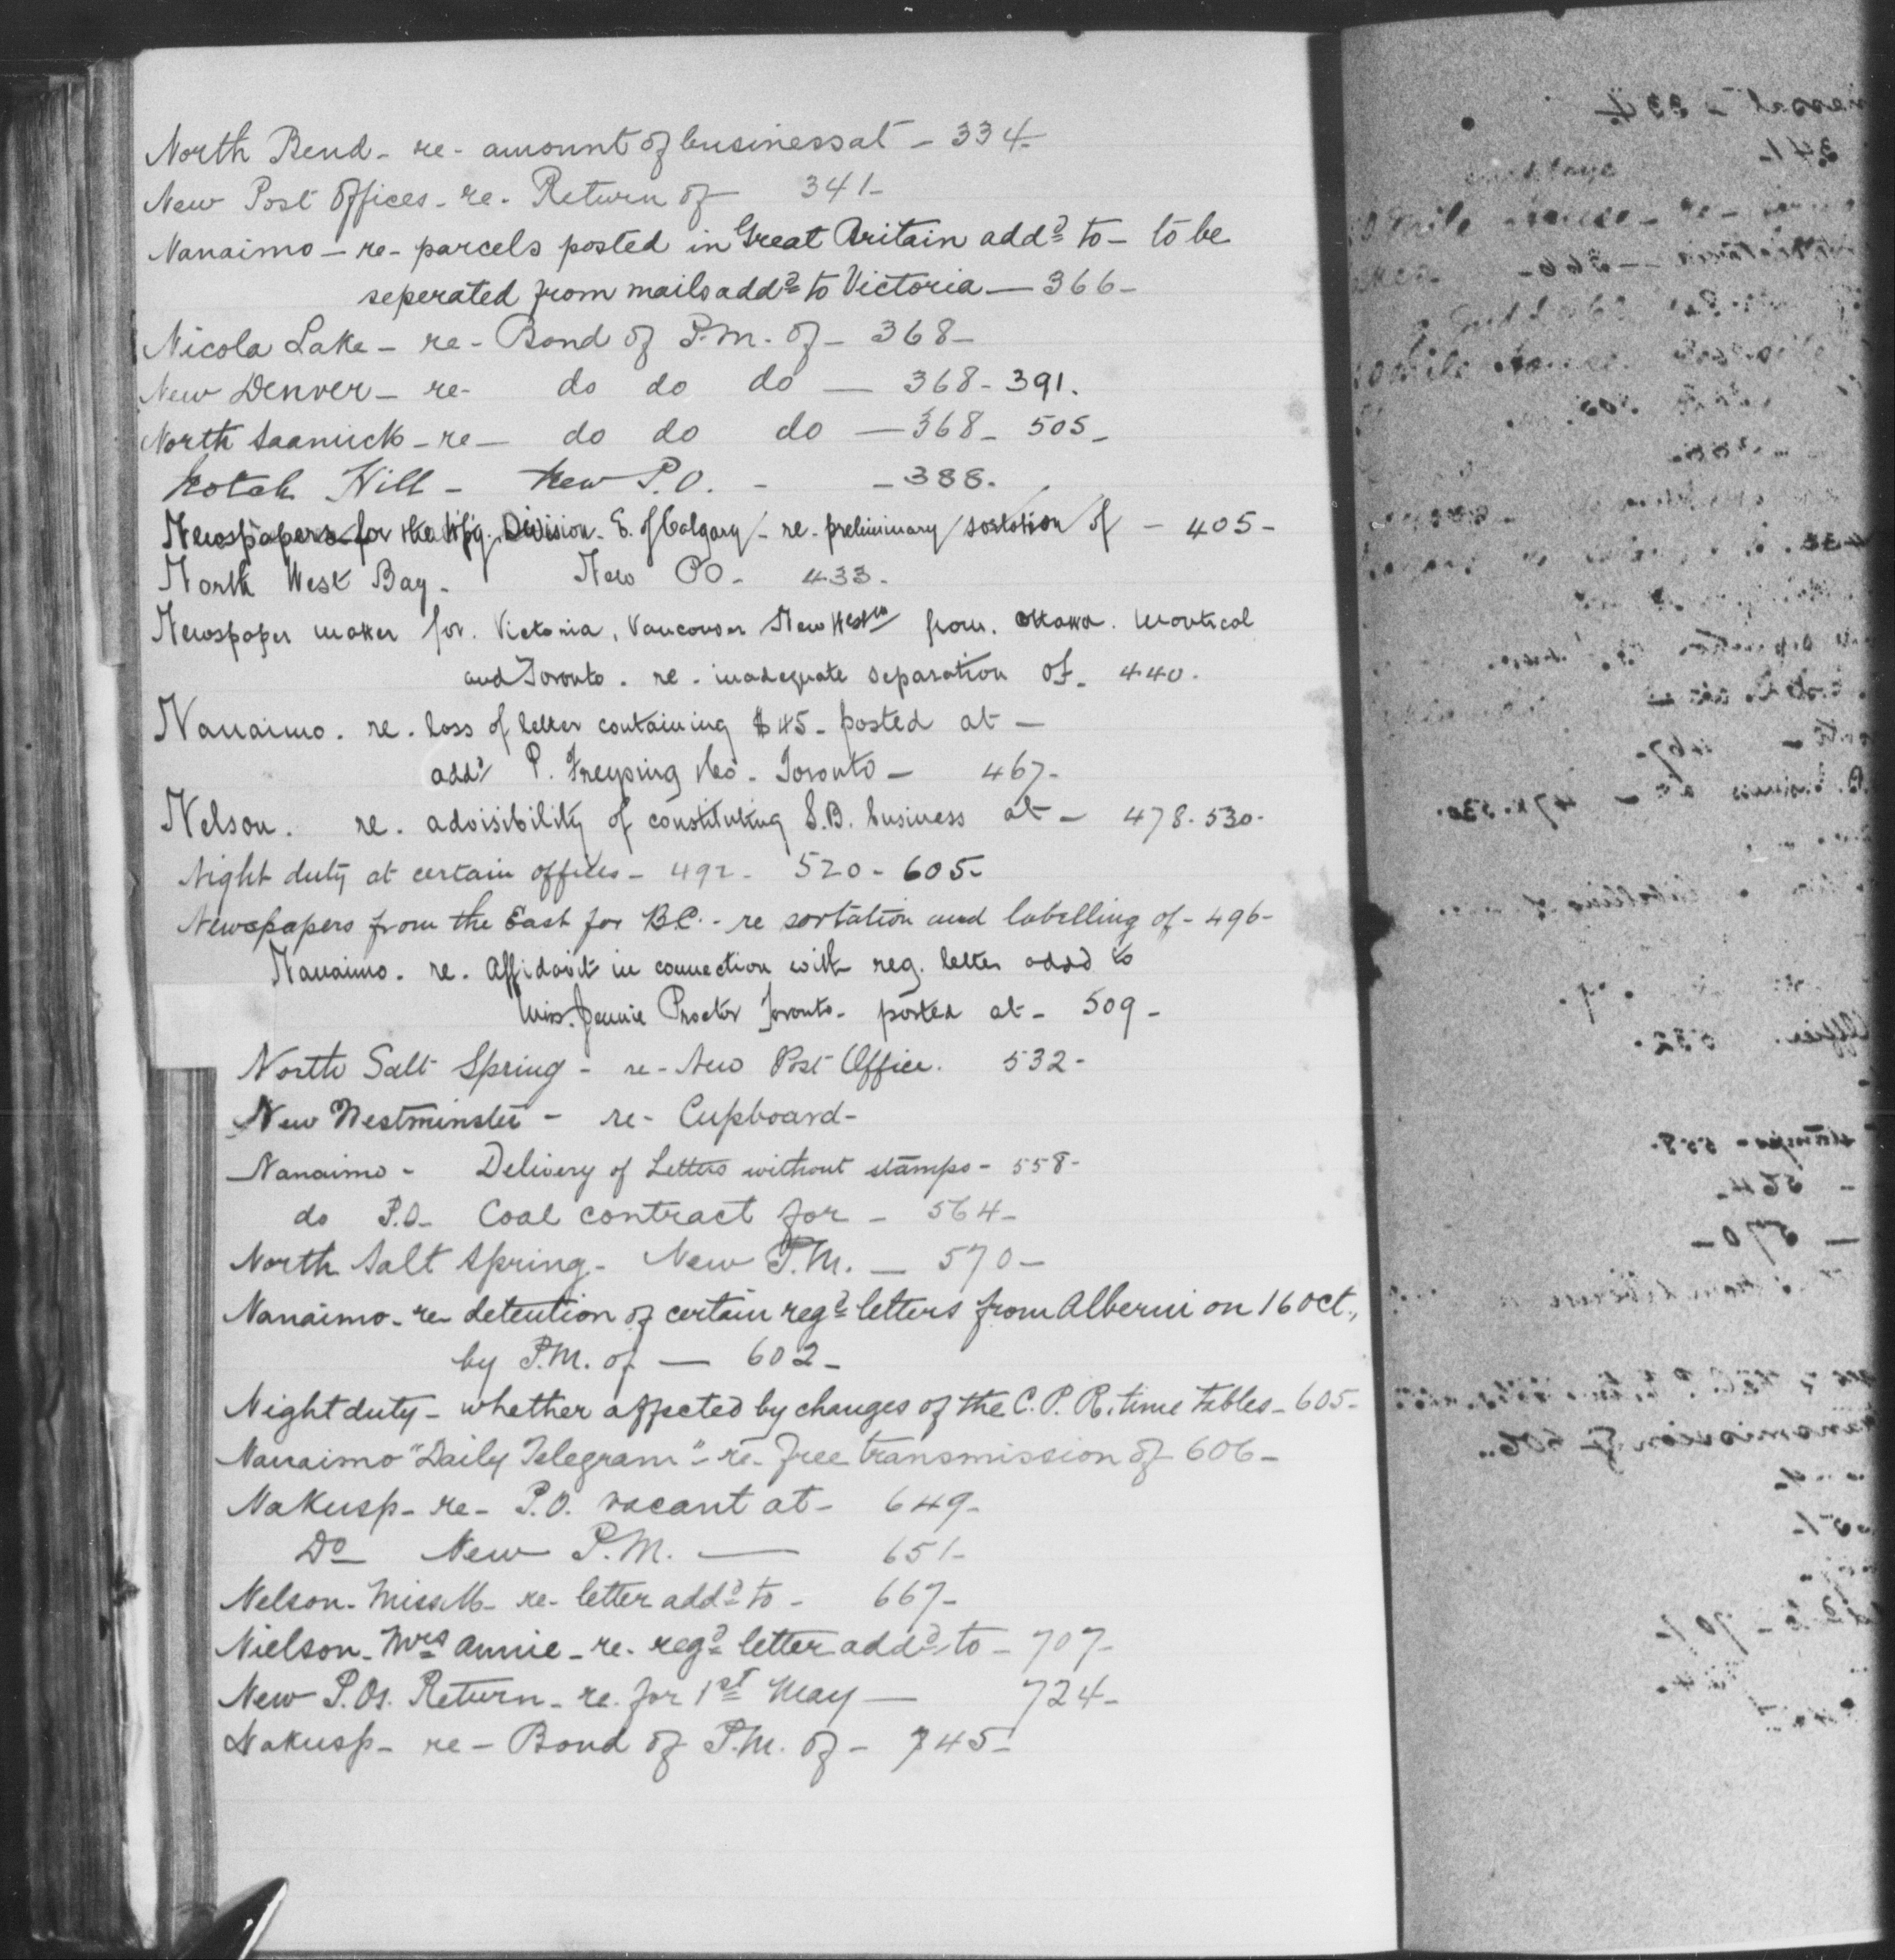 North Bend - re - amount of business at - 334 -
New Post Offices - re. Return of 341 -
Nanaimo - re - parcels posted in Great Britain addd to - to be
seperated from mails addd to Victoria - 366 -
Nicola Lake - re - Bond of P.M. of - 368 -
New Denver - re - do do do - 368 - 391.
North Saanich - re - do do do - 368 - 505 -
Notch Hill - New P.O. - - 388.
Newspapers for the Wpg. Division - E. of Calgary - re - preliminary sortation of - 405 -
North West Bay - New PO - 433 -
Newspaper matter for. Victoria, Vancouver New Westr from. Ottawa. Montreal
and Toronto. re. inadequate separation of. 440.
Nanaimo. re. loss of letter containing $45 - posted at -
addd P. Co - Toronto - 467 -
Nelson. re. advisibility of constituting S.B. business at - 478. 530 -
Night duty at certain offices - 492 - 520 - 605 -
Newspapers from the East for B.C. - re sortation and labelling of - 496 -
Nanaimo. re. Affidavit in connection with reg. letter addd to
Miss. Jennie Proctor Toronto - posted at - 509 -
North Salt Spring - re - New Post Office. 532 -
New Westminster - re - Cupboard -
Nanaimo - Delivery of Letters without stamps - 558 -
do P.O. Coal contract for - 564 -
North Salt Spring - New P.M. - 570 -
Nanaimo - re - detention of certain regd letters from Alberni on 16 Oct.,
by P.M. of - 602 -
Night duty - whether affected by changes of the C.P.R. time tables - 605 -
Nanaimo "Daily Telegram" - re - free transmission of 606 -
Nakusp - re - P.O. vacant at - 649 -
Do New P.M. - 651 -
Nelson - Miss M - re - letter addd to - 667 -
Nielson - Mrs Annie - re - regd letter addd to - 707 -
New P.Os. Return - re. for 1st May - 724 -
Nakusp - re - Bond of P.M. of - 745 -